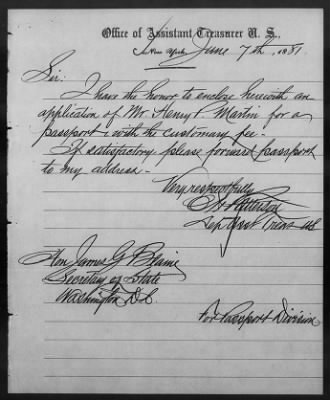 Office of Assistant Treasurer U. S.,
New York, June 7th, 1881.
Sir:
I have the honor to enclose herewith an
application of Mr. Henry P. Martin for a
passport & with the customary fee.
If satisfactory please forward passport
to my address.
Very respectfully
Dep Asst Treas US
Hon James G Blaine
Secretary of State
Washington D.C.
For Passport Division